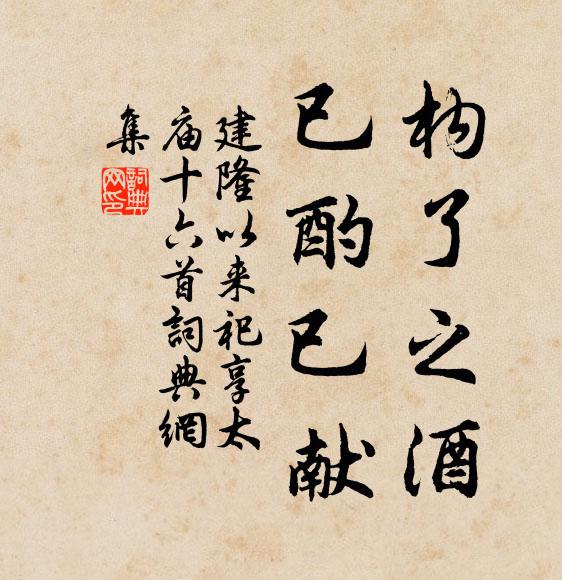 构了之酒
已酌已献
建隆以来祀享太
庙十六首詞典網
集
詞典
网印